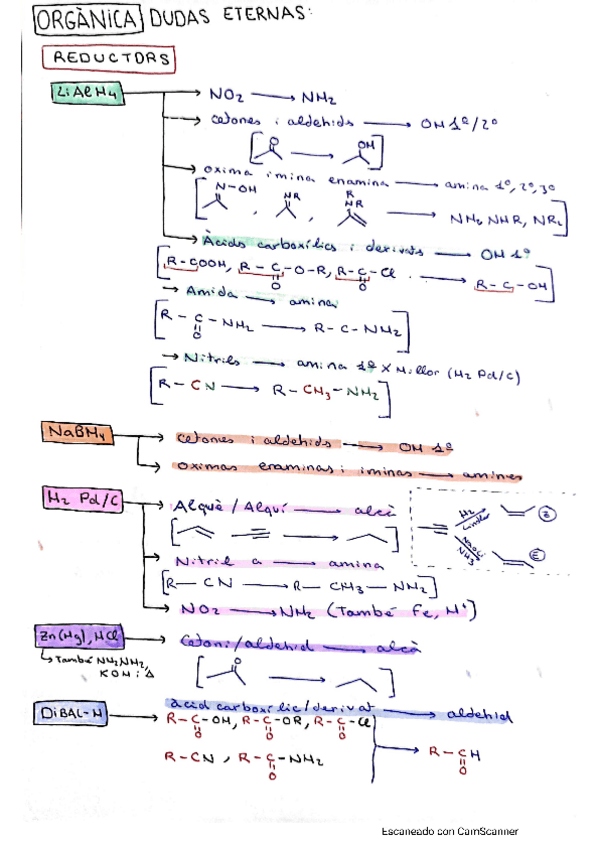 ORGÀNICA DUDAS ETERNAS:
REDUCTORS
LiAlH4
NO2 → NH2
cetones i aldehids → OH 1º/2º
O → OH
oxima imina enamina → amina 1º, 2º, 3º
N-OH, NR, R NR → NH2 NHR, NR2
Àcids carboxílics i derivats → OH 1º
R-COOH, R-C-O-R, R-C-Cl → R-C-OH
O O
→ Amida → amina
R-C-NH2 → R-C-NH2
O
→ Nitrils → amina 1º X Millor (H2 Pd/C)
R-CN → R-CH3-NH2
NaBH4
cetones i aldehids → OH 1º
oximas enaminas i iminas → amines
H2 Pd/C
Alquè/Alquí → alcà
H2 Lindlar Z
NH3 E
Nitril a → amina
R-CN → R-CH3-NH2
NO2 → NH2 (També Fe, H+)
Zn(Hg), HCl
Cetoni/aldehid → alcà
↳ També NH2NH2,
KOH i Δ
O
DiBAL-H
àcid carboxílic/derivat → aldehid
R-C-OH, R-C-OR, R-C-Cl
O O O
R-CN, R-C-NH2 → R-CH
O O
Escaneado con CamScanner